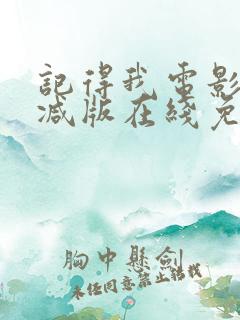 記得我電影
减版在綫免
胸中懸劍
未經同意禁止轉載